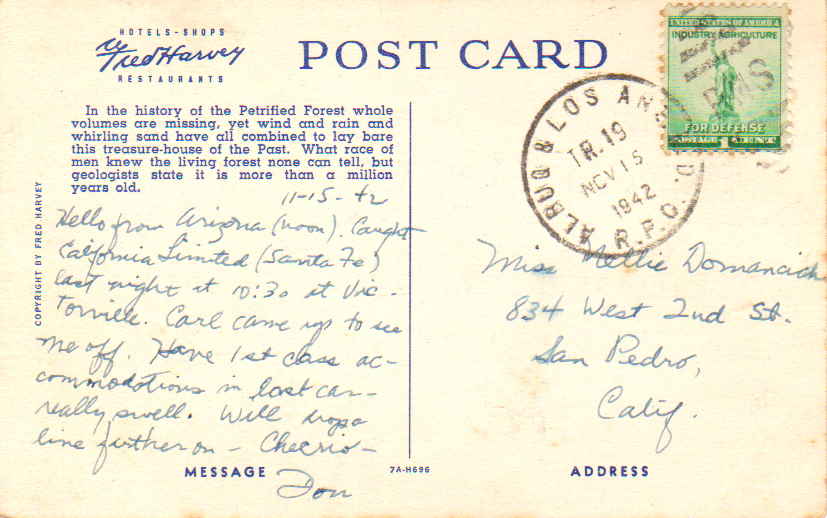 HOTELS - SHOPS
Fred Harvey
RESTAURANTS
POST CARD
In the history of the Petrified Forest whole
volumes are missing, yet wind and rain and
whirling sand have all combined to lay bare
this treasure-house of the Past. What race of
men knew the living forest none can tell, but
geologists state it is more than a million
years old.
COPYRIGHT BY FRED HARVEY
11-15-42
Hello from Arizona (noon). Caught
California Limited (Santa Fe)
last night at 10:30 at Vic-
torville. Carl came up to see
me off. Have 1st class ac-
commodations in last car-
really swell. Will drop a
line further on - Cheerio -
Don
MESSAGE
7A-H696
ADDRESS
UNITED STATES OF AMERICA
INDUSTRY AGRICULTURE
FOR DEFENSE
POSTAGE 1 CENT
RMS
ALBUQ & LOS ANG
TR. 19
NOV 15
1942
R.P.O.
Miss Nellie
834 West 2nd St.
San Pedro,
Calif.